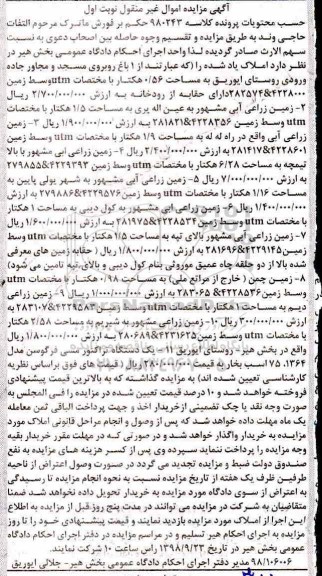 آگهی مزایده اموال غیر منقول نوبت اول
حسب محتویات پرونده کلاسه ۹۸۰۲۴۳ حکم بر فروش ماترک مرحوم التفات
حاجی وند به طریق مزایده و تقسیم وجوه حاصله بین اصحاب دعوی به نسبت
سهم الارث صادر گردیده لذا واحد اجرای احکام دادگاه عمومی بخش هیر در
نظر دارد املاک یاد شده را (که عبارتند از ۱ باغ روبروی مسجد و مجاور جاده
ورودی روستای ایوریق به مساحت ۰/۵۶ هکتار با مختصات utm وسط زمین
۴۲۲۸۰۰۰&۲۸۲۵۷۴ دارای حقابه از رودخانه به ارزش ۲/۷۰۰/۰۰۰/۰۰۰ ریال
۲- زمین زراعی آبی مشهور به عین اله پری به مساحت ۱/۵ هکتار با مختصات
utm وسط زمین ۴۲۲۸۳۵۶&۲۸۱۸۲۱ به ارزش ۱/۹۰۰/۰۰۰/۰۰۰ ریال ۳- زمین
زراعی آبی واقع در راه له له به مساحت ۱/۹ هکتار با مختصات utm وسط زمین
۴۲۲۸۶۰۱&۲۸۱۴۱۷ به ارزش ۲/۴۰۰/۰۰۰/۰۰۰ ریال ۴- زمین زراعی بالای
تیمچه به مساحت ۶/۲۸ هکتار با مختصات utm وسط زمین ۴۲۲۹۳۹۳&۲۷۹۸۵۵
به ارزش ۷/۰۰۰/۰۰۰/۰۰۰ ریال ۵- زمین زراعی آبی مشهور به شهر یولی پایین به
مساحت ۱/۱۶ هکتار با مختصات utm وسط زمین ۴۲۲۹۵۷۶&۲۷۹۸۸۶ به ارزش
۱/۴۰۰/۰۰۰/۰۰۰ ریال ۶- زمین زراعی آبی مشهور به کول دیبی به مساحت ۱ هکتار
با مختصات utm وسط زمین ۴۲۲۸۵۳۴&۲۸۱۹۷۵ به ارزش ۱/۶۰۰/۰۰۰/۰۰۰ ریال
۷- زمین زراعی آبی مشهور بالای تپه به مساحت ۱/۵ هکتار با مختصات utm وسط
زمین ۴۲۲۹۱۴۵&۲۸۱۶۹۶ به ارزش ۱/۸۰۰/۰۰۰/۰۰۰ ریال ( حقابه زمین های معرفی
شده بالا از دو حلقه چاه عمیق موروثی بنام کول دیبی و بالای تپه تامین می شود)
۸- زمین چمن ( خارج از مراتع ملی) به مساحت ۰/۹۸ هکتار با مختصات utm
وسط زمین ۴۲۲۸۵۳۶&۲۸۳۰۶۵ به ارزش ۱/۰۰۰/۰۰۰/۰۰۰ ریال ۹- زمین زراعی
دیم به مساحت ۱ هکتار با مختصات utm وسط زمین ۴۲۲۹۵۸۳&۲۸۳۱۰۷ به
ارزش ۳۰۰/۰۰۰/۰۰۰ ریال ۱۰- زمین زراعی مشهور به شیریم به مساحت ۲/۵۸ هکتار
با مختصات utm وسط زمین ۴۲۳۱۶۲۵&۲۸۰۶۸۹ به ارزش ۱/۸۰۰/۰۰۰/۰۰۰ ریال
واقع در بخش هیر- روستای ایوریق ۱۱- یک دستگاه تراکتور متنی درگوسن مدل
۱۳۶۴، ۷۵ اسب بخار به قیمت ۲۸۰/۰۰۰/۰۰۰ ریال (قیمت های فوق براساس نظریه
کارشناسی تعیین شده اند) به مزایده گذاشته که به بالاترین قیمت پیشنهادی
فروخته خواهد شد و ۱۰ درصد قیمت تعیین شده در مزایده را فی المجلس به
صورت وجه نقد یا چک تضمینی از خریدار اخذ و جهت پرداخت الباقی ثمن معامله
یک ماه مهلت داده خواهد شد که پس از وصول و انجام مراحل قانونی املاک مورد
مزایده به خریدار واگذار خواهد شد و در صورتی که در مهلت مقرر خریدار بقیه
وجه مزایده را پرداخت ننماید سپرده وی پس از کسر هزینه های مزایده به نفع
صندوق دولت ضبط و مزایده تجدید می گردد در صورت وصول اعتراض از ناحیه
طرفین ظرف یک هفته از تاریخ مزایده نسبت به نحوه انجام مزایده تا رسیدگی
به اعتراض از سوی دادگاه مورد مزایده به خریدار تحویل داده نخواهد شد ضمنا
متقاضیان به شرکت در مزایده می توانند در مدت پنج روز قبل از مزایده به اطلاع
این اجرا از املاک مورد مزایده بازدید نمایند و قیمت پیشنهادی خود را تا روز
مزایده به اجرای احکام هیر تسلیم و در مراسم مزایده در دفتر اجرای احکام دادگاه
عمومی بخش هیر در تاریخ ۱۳۹۸/۹/۲۳ راس ساعت ۱۰ شرکت نمایند.
۹۸/۱۰۶۰۰۶ مدیر دفتر اجرای احکام دادگاه عمومی بخش هیر- جلالی ایوریق